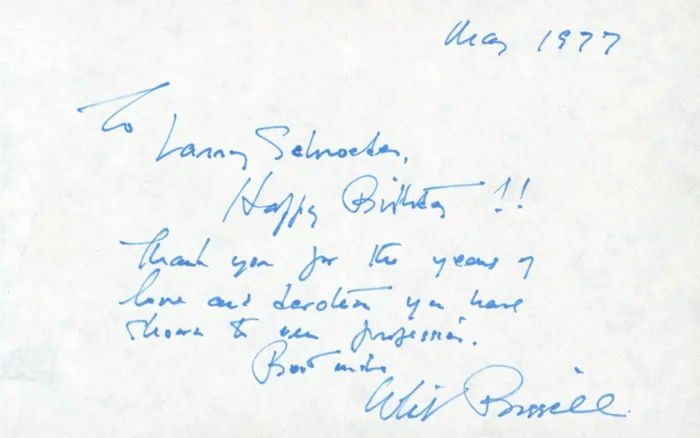 May 1977
To
Larry Schroeder,
Happy Birthday !!
Thank you for the years of
love and devotion you have
shown to our profession.
Best wishes
Russell